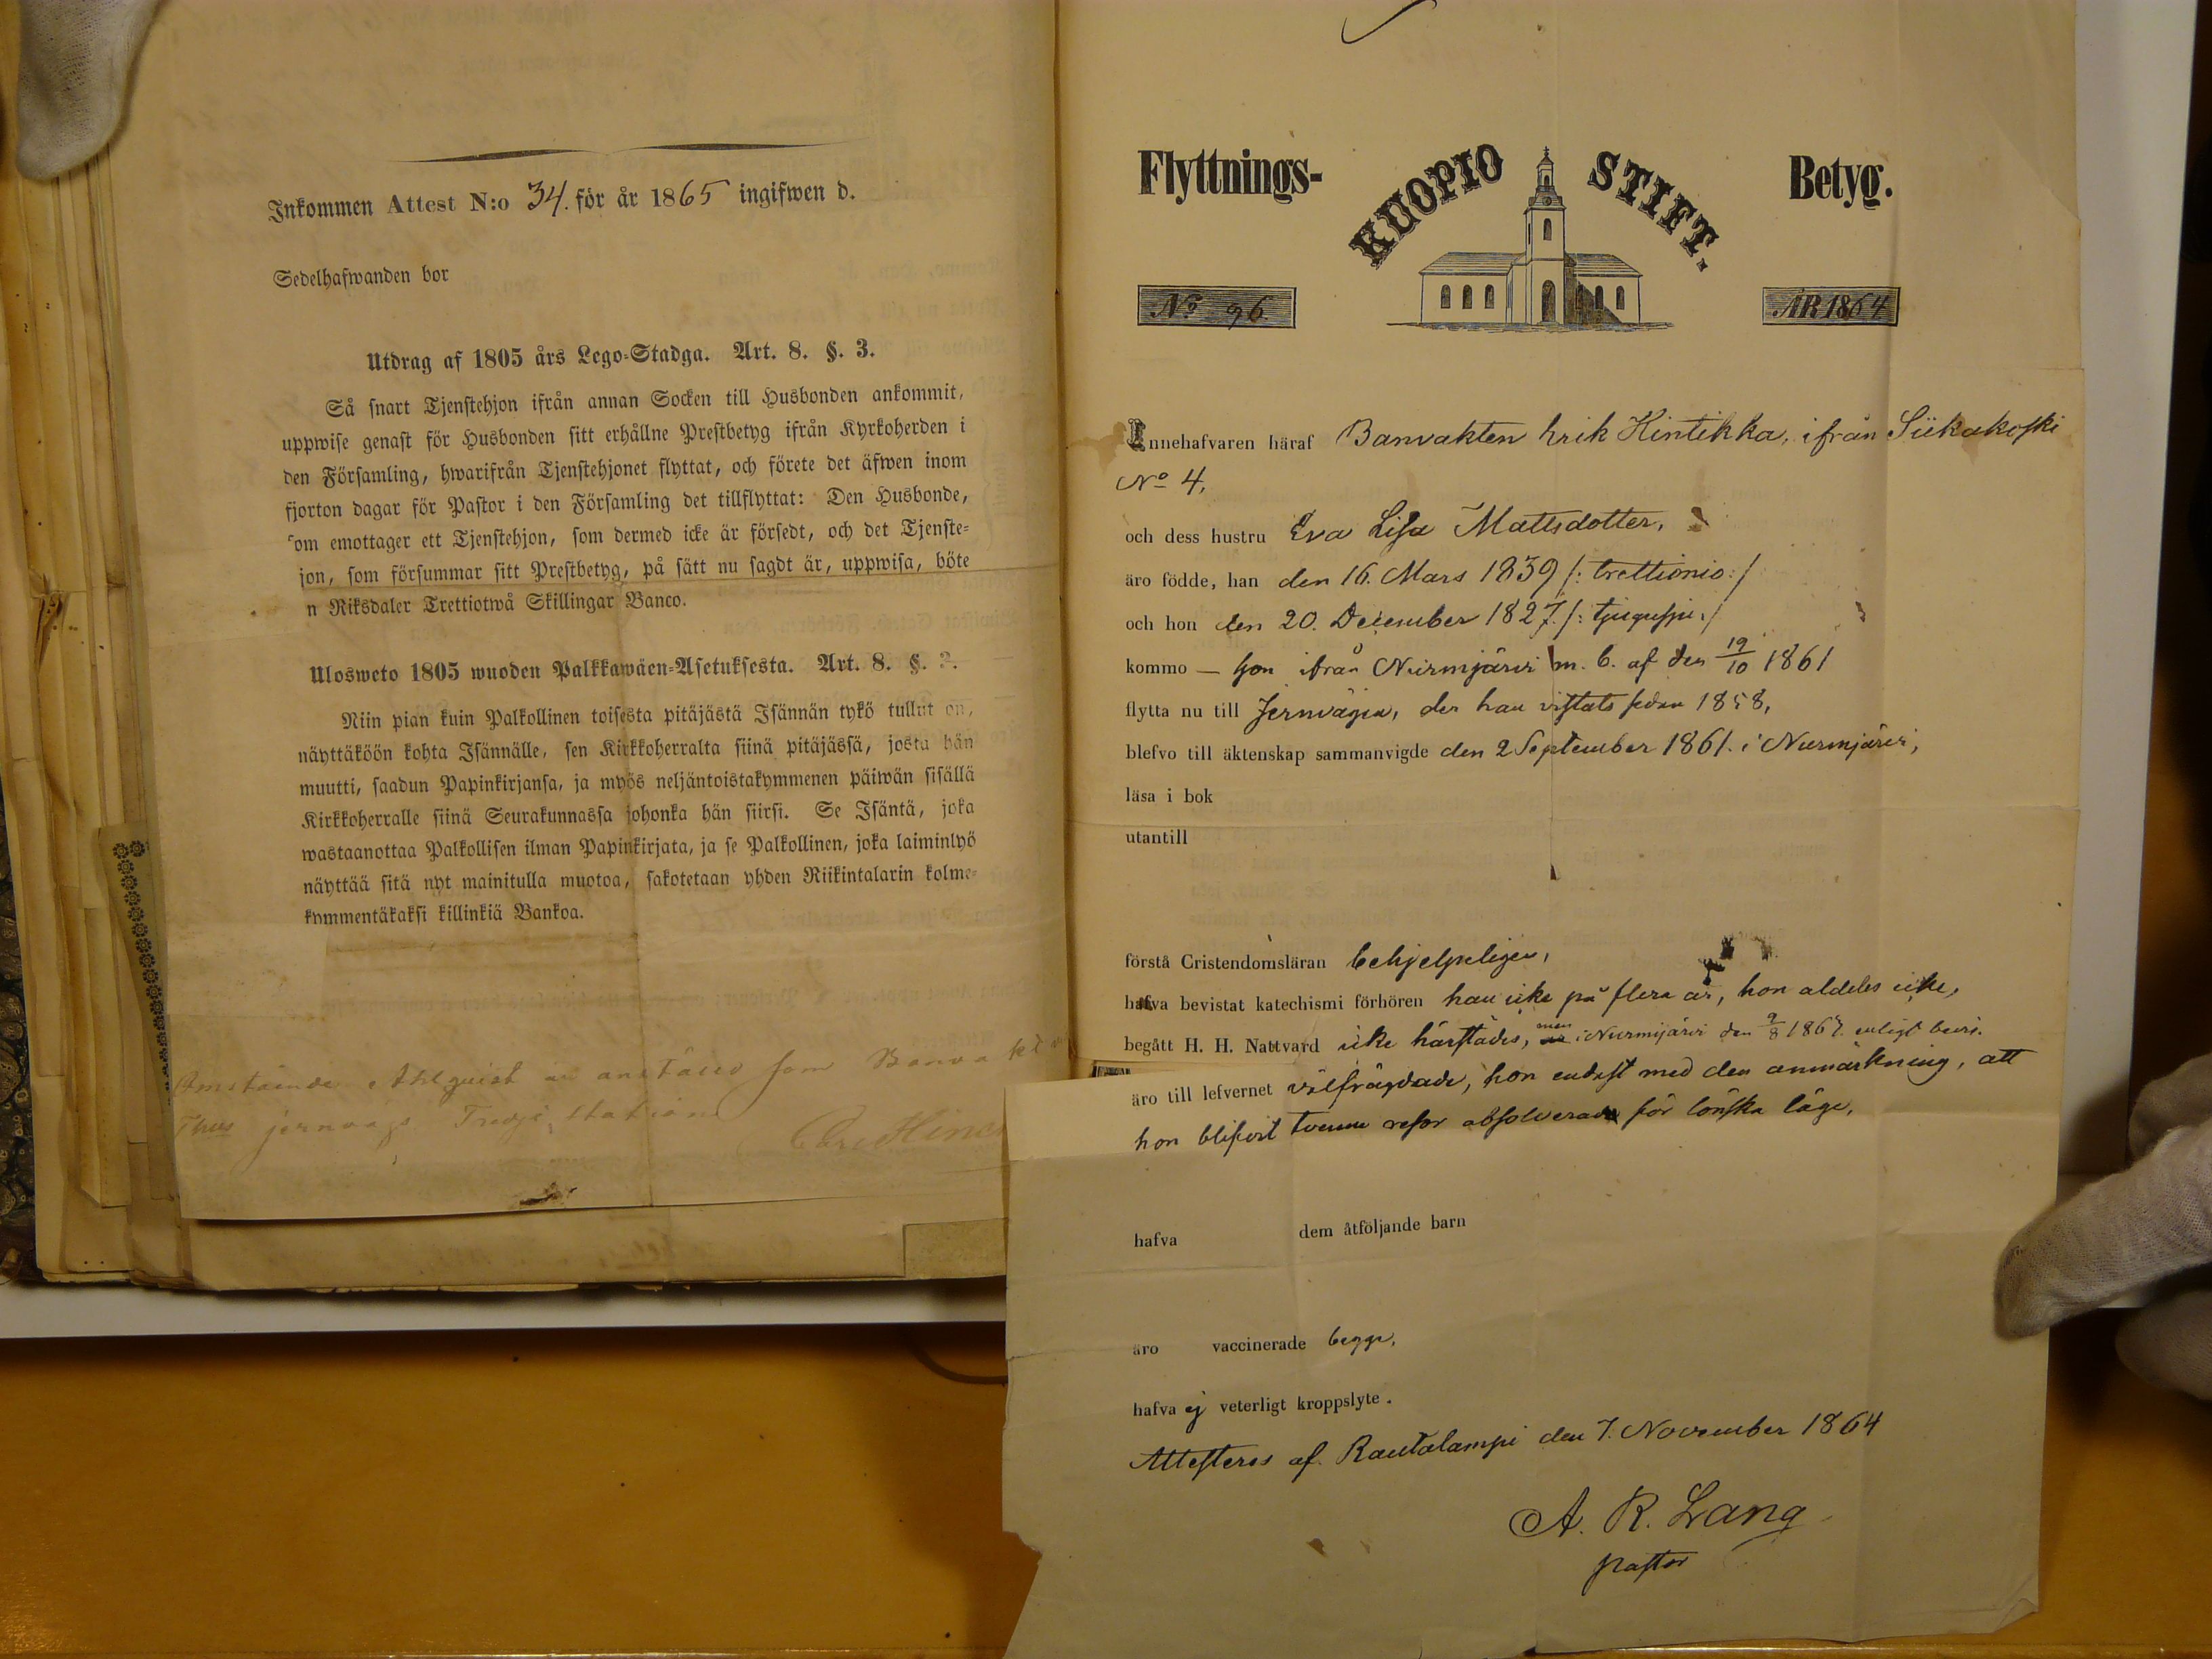 Inkommen Attest N:o 34. för år 1865 ingifwen d.
Sedelhafwanden bor
Utdrag af 1805 års Lego-Stadga. Art. 8. §. 3.
Så snart Tjenstehjon ifrån annan Socken till Husbonden ankommit,
uppwise genast för Husbonden sitt erhållne Prestbetyg ifrån Kyrkoherden i
den Församling, hwarifrån Tjenstehjonet flyttat, och förete det äfwen inom
fjorton dagar för Pastor i den Församling det tillflyttat: Den Husbonde,
om emottager ett Tjenstehjon, som dermed icke är försedt, och det Tjenste-
jon, som försummar sitt Prestbetyg, på sätt nu sagdt är, uppwisa, böte
n Riksdaler Trettiotwå Skillingar Banco.
Ulosweto 1805 wuoden Palkkawäen-Asetuksesta. Art. 8. §. 3.
Niin pian kuin Palkollinen toisesta pitäjästä Isännän tykö tullut on,
näyttäköön kohta Isännälle, sen Kirkkoherralta siinä pitäjässä, josta hän
muutti, saadun Papinkirjansa, ja myös neljäntoistakymmenen päiwän sisällä
Kirkkoherralle siinä Seurakunnassa johonka hän siirsi. Se Isäntä, joka
wastaanottaa Palkollisen ilman Papinkirjata, ja se Palkollinen, joka laiminlyö
näyttää sitä nyt mainitulla muotoa, sakotetaan yhden Riikintalarin kolme-
kymmentäkaksi killinkiä Bankoa.
Ahlquist som Banva
jernvägs Tredje Station
Flyttnings- KUOPIO STIFT. Betyg.
No 96. ÅR 1864
Innehafvaren häraf Banvakten Erik Hintikka, ifrån Siikakoski
No 4,
och dess hustru Eva Lisa Mattsdotter,
äro födde, han den 16. Mars 1839 /: trettionio :/
och hon den 20. December 1827. /: tjugusju :/
kommo — hon ifrån Nurmijärvi m. b. af den 19/10 1861
flytta nu till Jernvägen, der han vistats sedan 1858,
blefvo till äktenskap sammanvigde den 2 September 1861. i Nurmijärvi,
läsa i bok
utantill
förstå Cristendomsläran behjelpeligen,
hafva bevistat katechismi förhören han icke på flera år, hon aldeles icke,
begått H. H. Nattvard icke härstädes, men i Nurmijärvi den enligt bevis.
äro till lefvernet välfrägdade, hon endast med den anmärkning, att
hon blifvit tvenne resor absolverad för lönska läge,
hafva dem åtföljande barn
äro vaccinerade begge,
hafva ej veterligt kroppslyte.
Attesteras af. Rautalampi den 7. November 1864
A. R. Lang
pastor